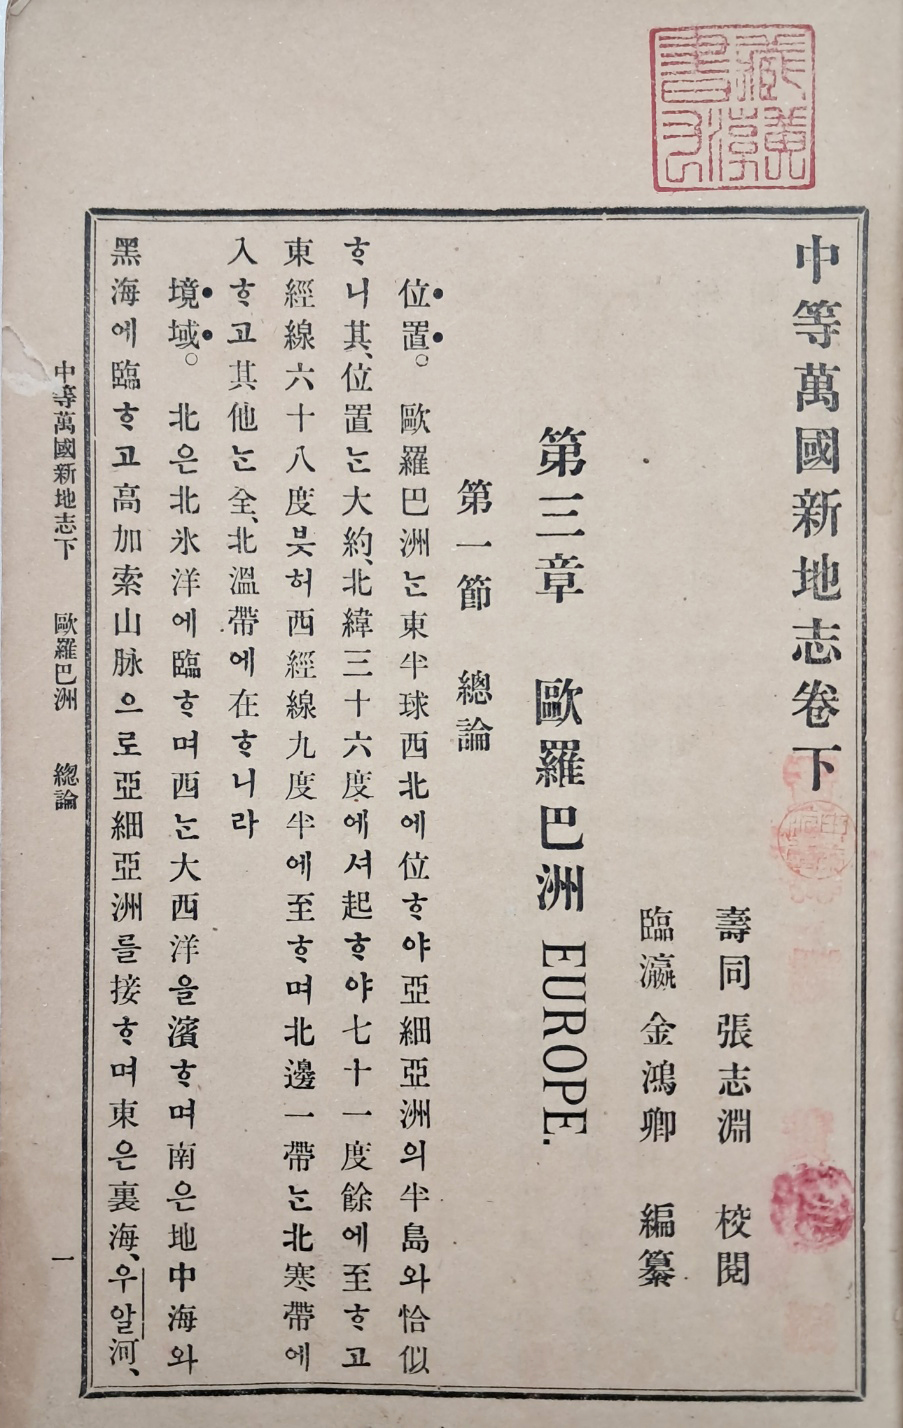 中等萬國新地志卷下
壽同 張志淵 校閱
臨瀛 金鴻卿 編纂
第三章 歐羅巴洲 EUROPE.
第一節 總論
位置。 歐羅巴洲ᄂᆞᆫ東半球西北에位ᄒᆞ야亞細亞洲의半島와恰似
ᄒᆞ니其、位置ᄂᆞᆫ大約、北緯三十六度에셔起ᄒᆞ야七十一度餘에至ᄒᆞ고
東經線六十八度븟허西經線九度半에至ᄒᆞ며北邊一帶ᄂᆞᆫ北寒帶에
入ᄒᆞ고其他ᄂᆞᆫ全、北溫帶에在ᄒᆞ니라
境域。 北은北氷洋에臨ᄒᆞ며西ᄂᆞᆫ大西洋을濱ᄒᆞ며南은地中海와
黑海에臨ᄒᆞ고高加索山脉으로亞細亞洲를接ᄒᆞ며東은裏海、우알河、
中等萬國新地志下 歐羅巴洲 總論 一